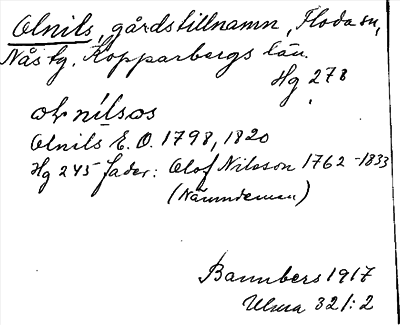 Olnils, gårdstillnamn, Floda sn,
Nås tg. Kopparbergs län.
Hg 278
ol nilsos
Olnils E. O. 1798, 1820
Hg 245 fader: Olof Nilsson 1762-1833
Bannbers 1917
Ulma 321:2